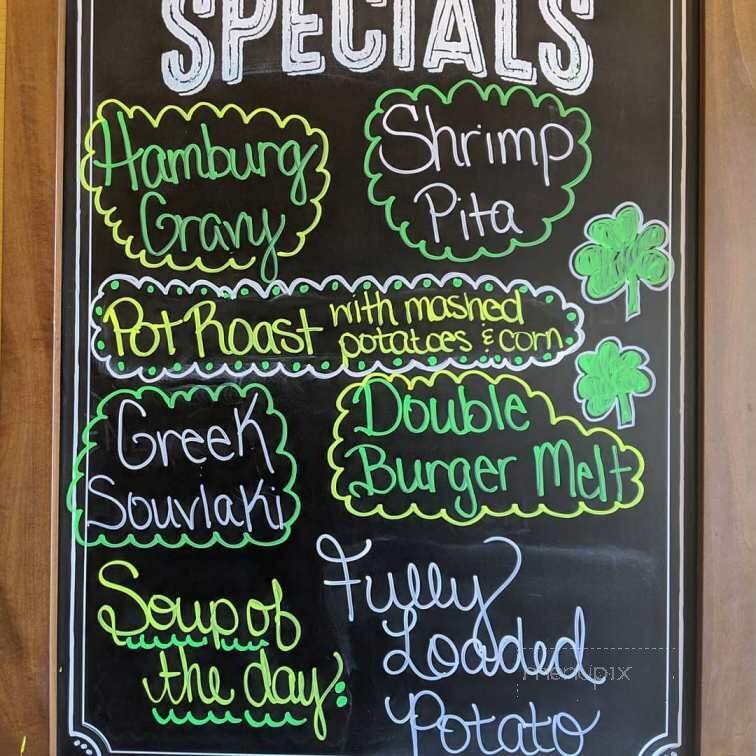 SPECIALS
Hamburg
Gravy
Shrimp
Pita
Pot Roast with mashed
potatoes & corn
Greek
Souvlaki
Double
Burger Melt
Soup of
the day:
Fully
Loaded
Potato
menupix